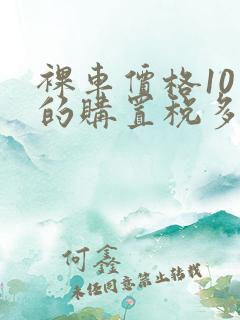 裸車價格10
的購置稅多
何鑫
未经同意禁止转载